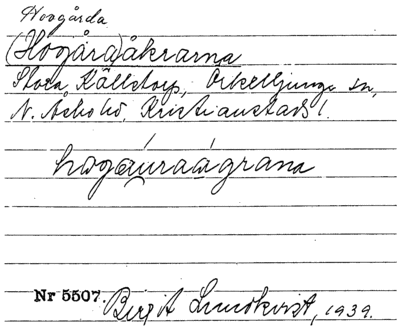 Hovgårda
(Hogård)åkrarna
Stora Källstorp, Örkelljunga sn,
N. Åsbo hd, Kristianstads l.
hogáuraágrana
Nr 5507. Birgit Lundkvist, 1939.